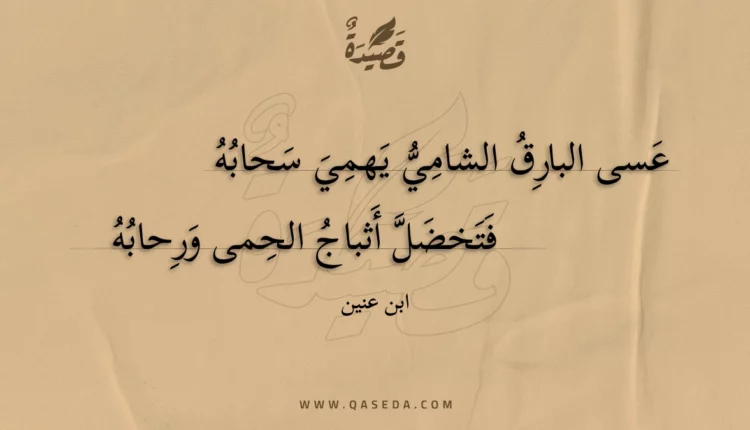 قَصِيدَةٌ
عَسى البارِقُ الشامِيُّ يَهمِيَ سَحابُهُ
فَتَخضَلَّ أَثباجُ الحِمى وَرِحابُهُ
ابن عنين
WWW.QASEDA.COM